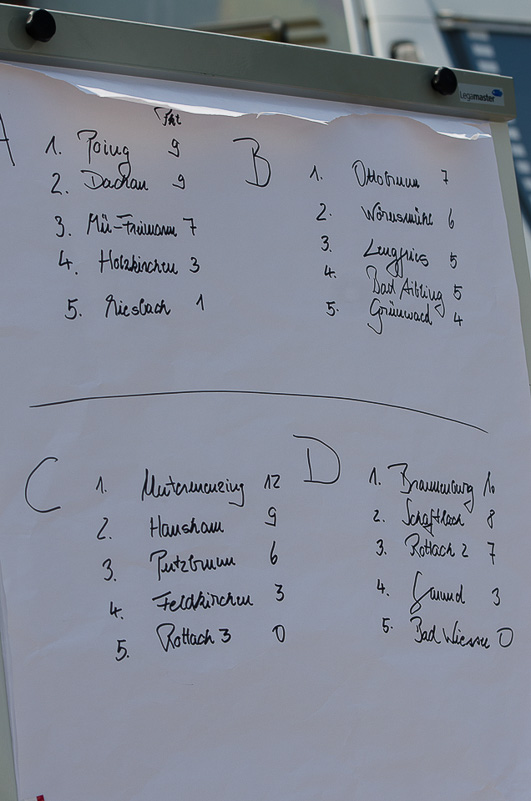 Legamaster
A
Pkt
1. Poing 9
2. Dachau 9
3. Mü-Freimann 7
4. Holzkirchen 3
5. Miesbach 1
B
1. Ottobrunn 7
2. Wörnsmühl 6
3. Lenggries 5
4. Bad Aibling 5
5. Grünwald 4
C
1. Untermenzing 12
2. Hausham 9
3. Putzbrunn 6
4. Feldkirchen 3
5. Rottach 3 0
D
1. Brannenburg 10
2. Schaftlach 8
3. Rottach 2 7
4. Gmund 3
5. Bad Wiessee 0